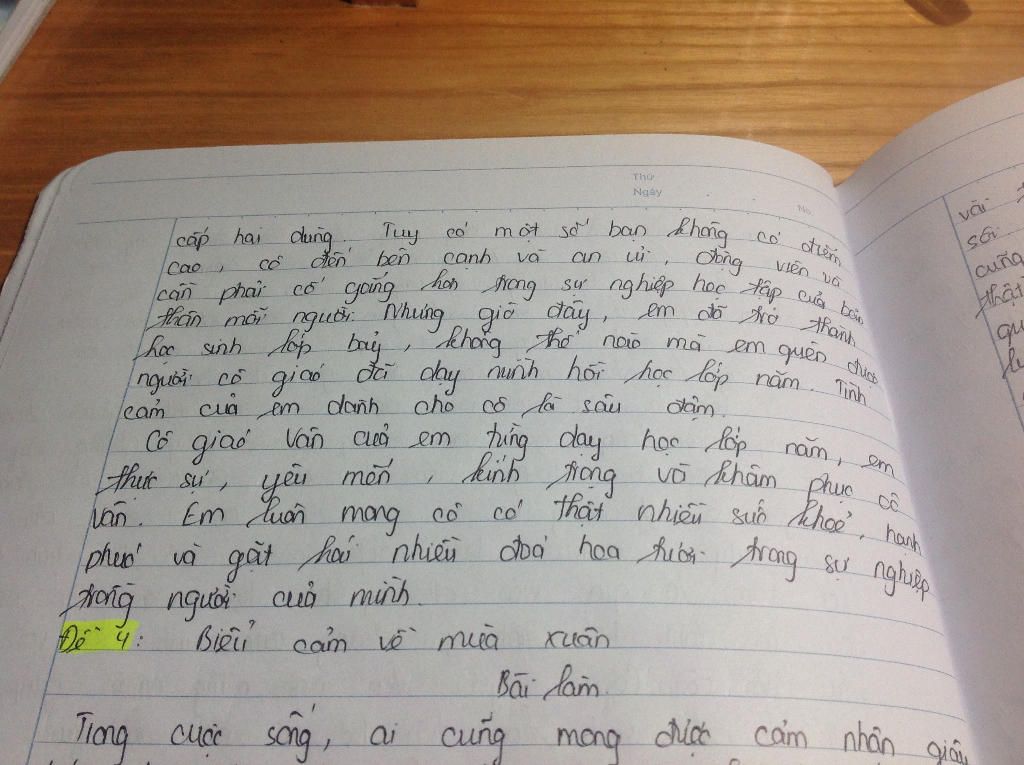 Thứ
Ngày
No.
cấp hai dùng. Tuy có một số bạn không có điểm
cao, cô đến bên cạnh và an ủi, động viên và
cần phải cố gắng hơn trong sự nghiệp học tập của bản
thân mỗi người. Nhưng giờ đây, em đã trở thành
học sinh lớp bảy, không thể nào mà em quên được
người cô giáo đã dạy mình hồi học lớp năm. Tình
cảm của em dành cho cô là sâu đậm.
Cô giáo Vân của em từng dạy học lớp năm, em
thực sự, yêu mến, kính trọng và khâm phục cô
Vân. Em luôn mong cô có thật nhiều sức khoẻ, hạnh
phúc và gặt hái nhiều đoá hoa tươi trong sự nghiệp
trồng người của mình.
Đề 4: Biểu cảm về mùa xuân
Bài làm.
Trong cuộc sống, ai cũng mong được cảm nhận giây
vài
sôi
cũng
thật